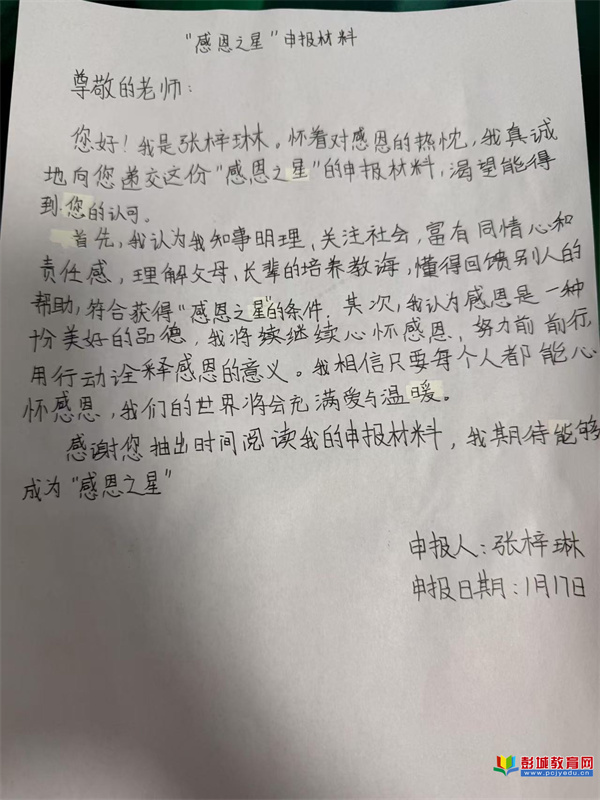 “感恩之星”申报材料
尊敬的老师：
您好！我是张梓琳。怀着对感恩的热忱，我真诚
地向您递交这份“感恩之星”的申报材料，渴望能得
到您的认可。
首先，我认为我知事明理、关注社会，富有同情心和
责任感，理解父母、长辈的培养教诲，懂得回馈别人的
帮助，符合获得“感恩之星”的条件。其次，我认为感恩是一种
份美好的品德，我将续继续心怀感恩，努力前前行，
用行动诠释感恩的意义。我相信只要每个人都能心
怀感恩，我们的世界将会充满爱与温暖。
感谢您抽出时间阅读我的申报材料，我期待能够
成为“感恩之星”
申报人：张梓琳
申报日期：1月17日
彭城教育网
www.pcjyedu.cn